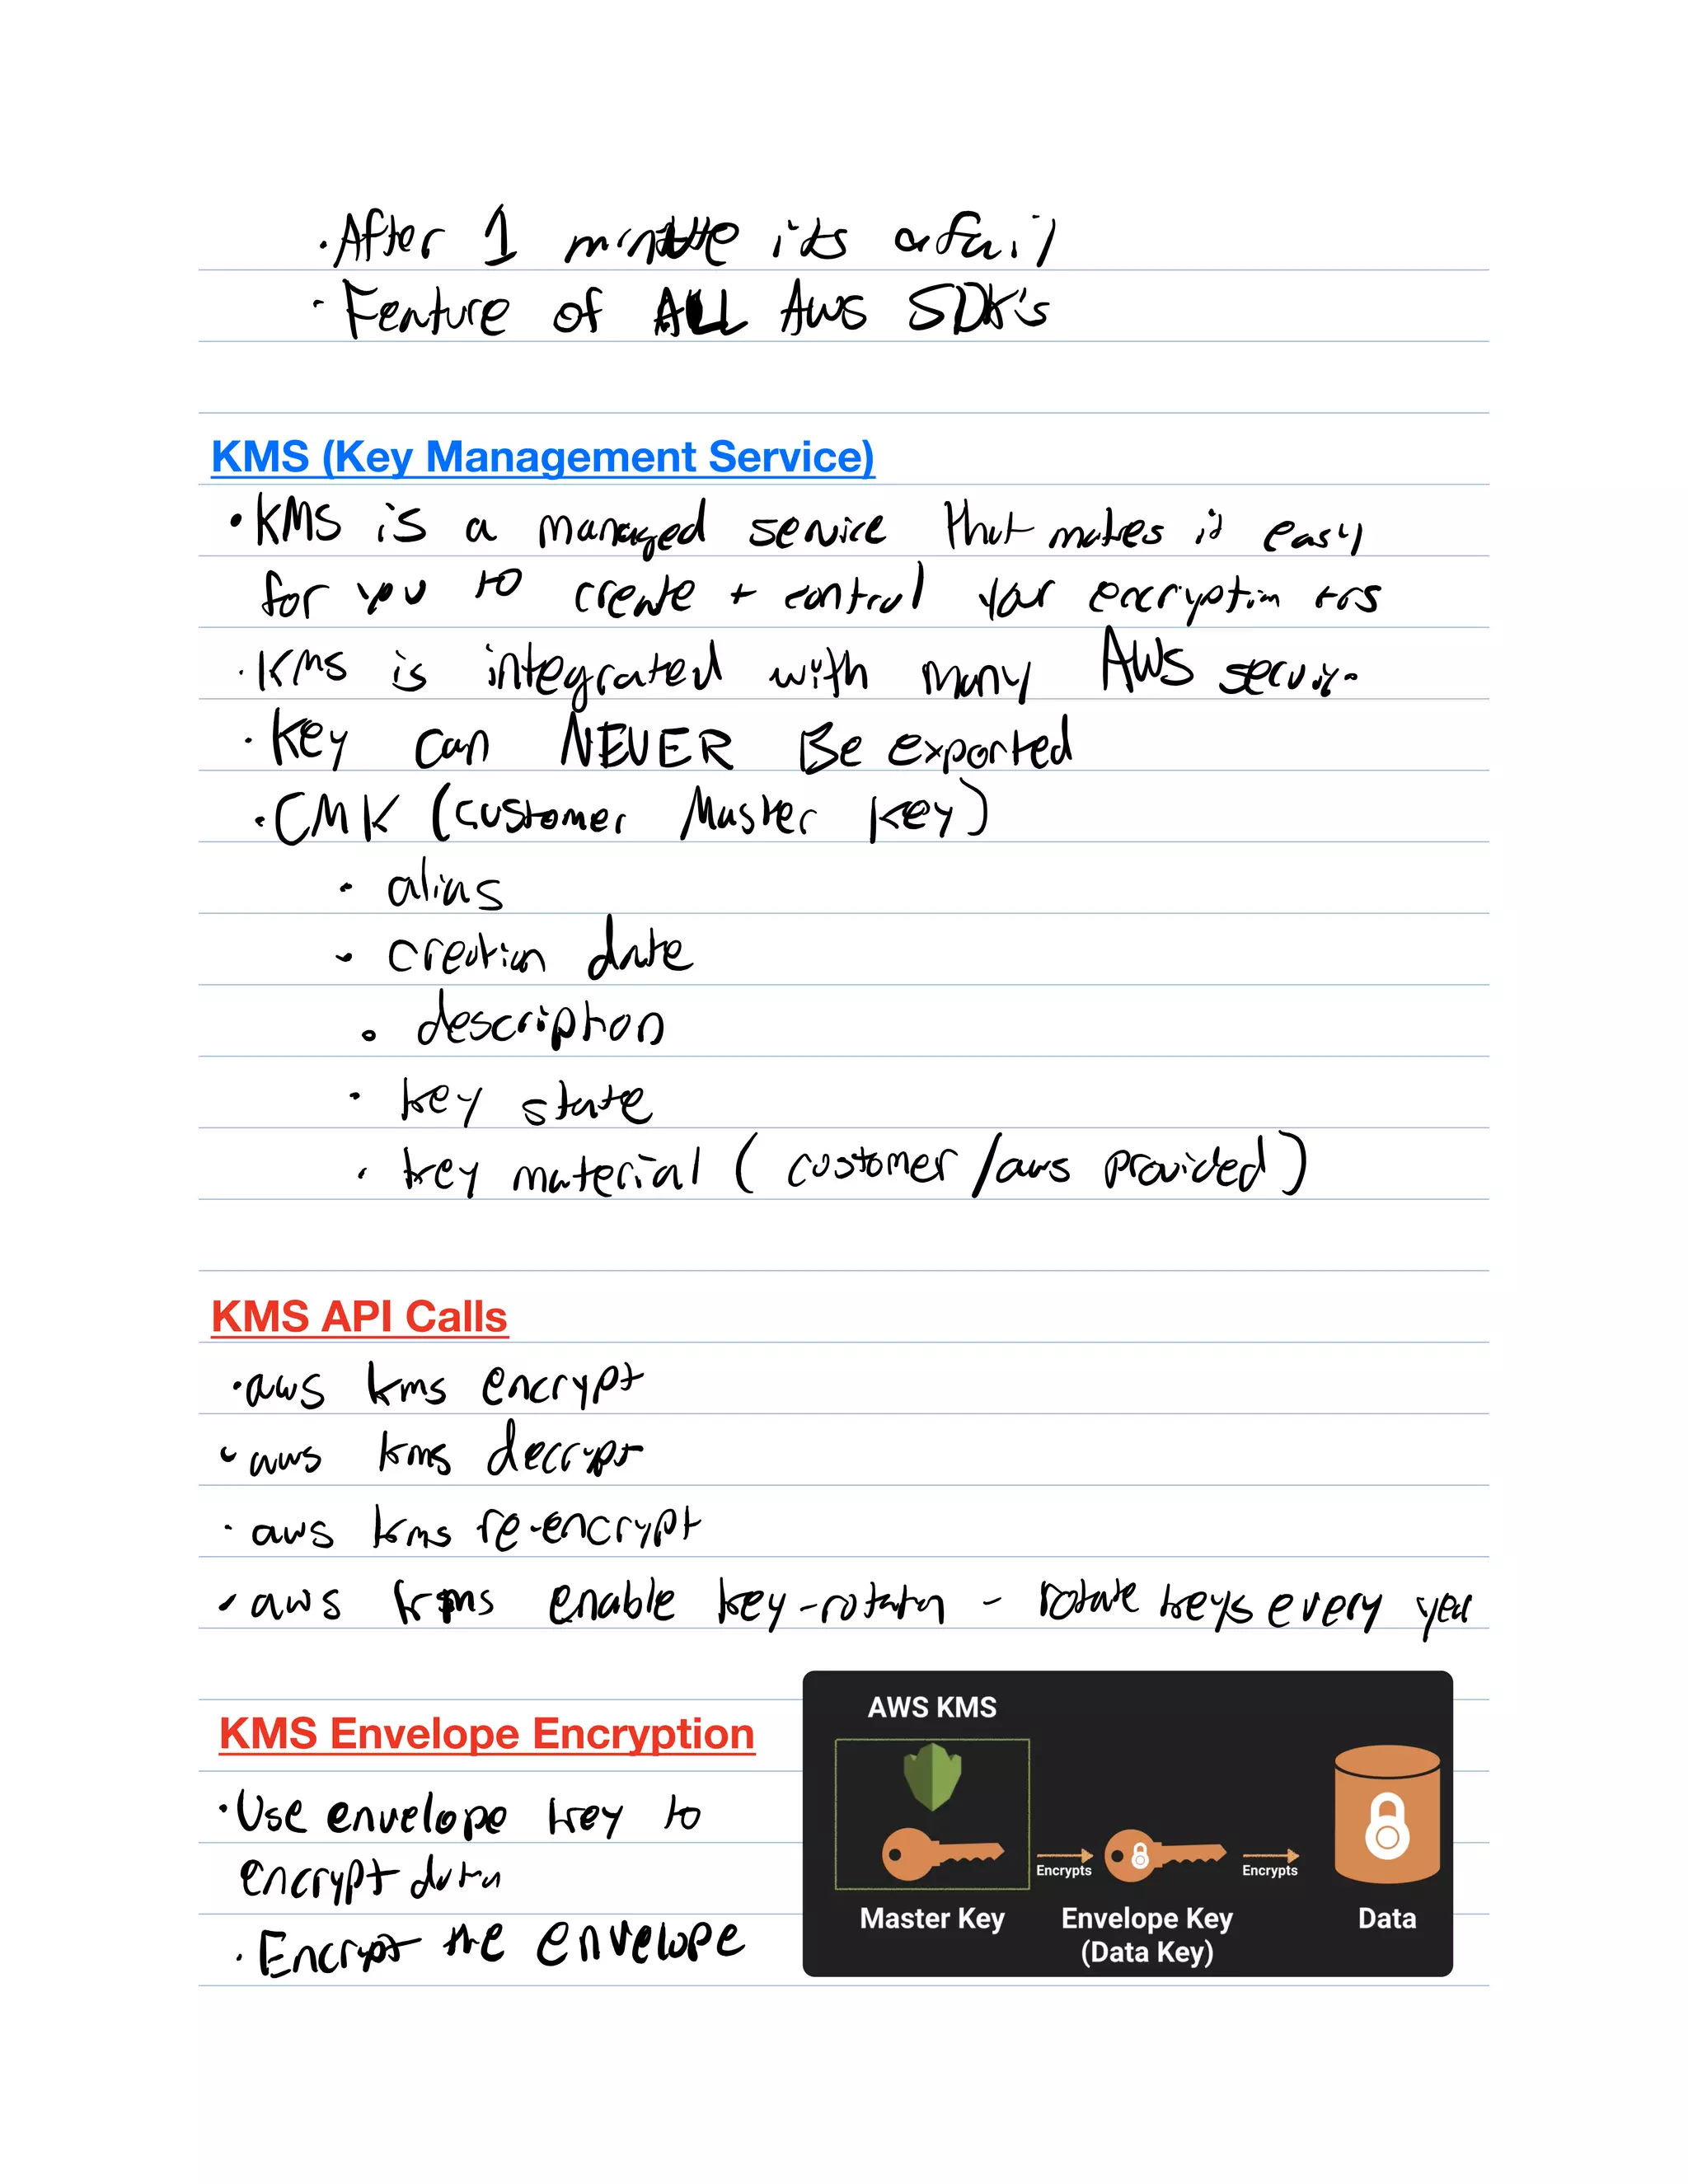 · After 1 minute its a fail
· Feature of ALL Aws SDK's
KMS (Key Management Service)
• KMS is a managed service that makes it easy
for you to create + control your encryption
· KMS is integrated with many AWS
· Key can NEVER Be exported
· CMK (Customer Master Key)
· alias
· creation date
· description
· key state
· key material (customer/aws provided)
KMS API Calls
· aws kms encrypt
· aws kms decrypt
· aws kms re-encrypt
· aws kms enable key-rotation - rotate keys every year
KMS Envelope Encryption
· Use envelope key to
encrypt data
· Encrypt the envelope
AWS KMS
Encrypts
Encrypts
Master Key
Envelope Key
(Data Key)
Data